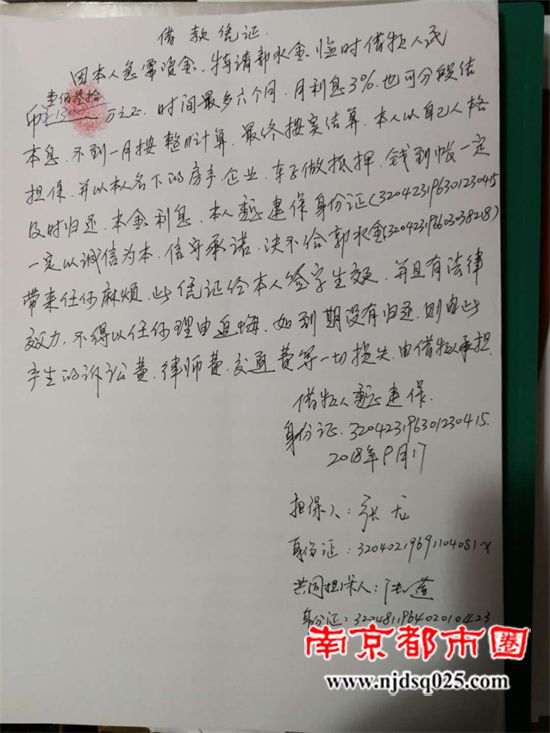 借款凭证
因本人急需资金、特请郭水金临时借款人民
壹佰叁拾
币 130 万元正、时间最多六个月、月利息3%、也可分段结
本息、不到一月按整月计算、最终按实结算、本人以自己人格
担保、并以本人名下的房子、企业、车子做抵押、钱到帐一定
及时归还、本金利息、本人 建保身份证(320423196301230415
一定以诚信为本、信守承诺、决不给郭水金(320423196603038218)
带来任何麻烦、此凭证经本人签字生效、并且有法律
效力、不得以任何理由反悔、如到期没有归还、则由此
产生的诉讼费、律师费、交通费等一切损失、由借款人承担
借款人 建保、
身份证、320423196301230415
2018年9月17
担保人:张
身份证:32040219691104081X
共同担保人:
身份证:320481196402010423
南京都市圈
www.njdsq025.com